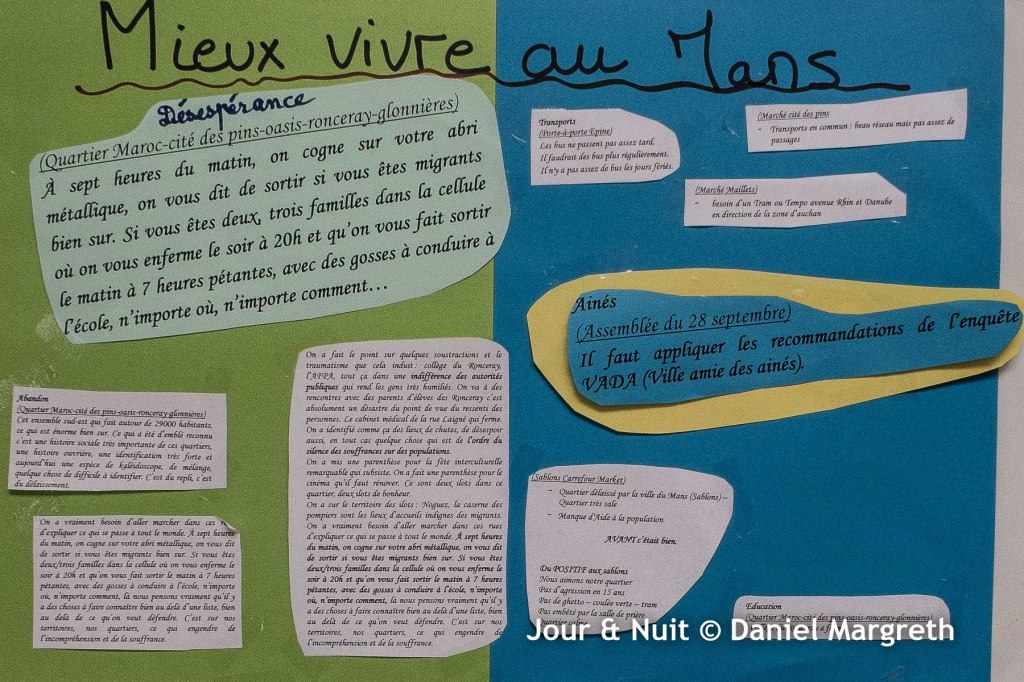 Mieux vivre au Mans
Désespérance
(Quartier Maroc-cité des pins-oasis-ronceray-glonnières)
À sept heures du matin, on cogne sur votre abri
métallique, on vous dit de sortir si vous êtes migrants
bien sur. Si vous êtes deux, trois familles dans la cellule
où on vous enferme le soir à 20h et qu'on vous fait sortir
le matin à 7 heures pétantes, avec des gosses à conduire à
l'école, n'importe où, n'importe comment…
Abandon
(Quartier Maroc-cité des pins-oasis-ronceray-glonnières)
Cet ensemble sud-est qui fait autour de 29000 habitants,
ce qui est énorme bien sur. Ce qui a été d'emblé reconnu
c'est une histoire sociale très importante de ces quartiers,
une histoire ouvrière, une identification très forte et
aujourd'hui une espèce de kaléidoscope, de mélange,
quelque chose de difficile à identifier. C'est du repli, c'est
du délaissement.
On a vraiment besoin d'aller marcher dans ces
d'expliquer ce qui se passe à tout le monde. À sept heures
du matin, on cogne sur votre abri métallique, on vous dit
de sortir si vous êtes migrants bien sur. Si vous êtes
deux/trois familles dans la cellule où on vous enferme le
soir à 20h et qu'on vous fait sortir le matin à 7 heures
pétantes, avec des gosses à conduire à l'école, n'importe
où, n'importe comment, là nous pensons vraiment qu'il y
a des choses à faire connaître bien au delà d'une liste, bien
au delà de ce qu'on veut défendre. C'est sur nos
territoires, nos quartiers, ce qui engendre de
l'incompréhension et de la souffrance.
On a fait le point sur quelques soustractions et le
traumatisme que cela induit : collège du Ronceray,
l'AFPA, tout ça dans une indifférence des autorités
publiques qui rend les gens très humiliés. On va à des
rencontres avec des parents d'élèves des Ronceray c'est
absolument un désastre du point de vue du ressenti des
personnes. Le cabinet médical de la rue Laigné qui ferme.
On a identifié comme ça des lieux de chutes, de désespoir
aussi, en tout cas quelque chose qui est de l'ordre du
silence des souffrances sur des populations.
On a mis une parenthèse pour la fête interculturelle
remarquable qui subsiste. On a fait une parenthèse pour le
cinéma qu'il faut rénover. Ce sont deux ilots dans ce
quartier, deux ilots de bonheur.
On a sur le territoire des ilots : Noguez, la caserne des
pompiers sont les lieux d'accueils indignes des migrants.
On a vraiment besoin d'aller marcher dans ces rues
d'expliquer ce qui se passe à tout le monde. À sept heures
du matin, on cogne sur votre abri métallique, on vous dit
de sortir si vous êtes migrants bien sur. Si vous êtes
deux/trois familles dans la cellule où on vous enferme le
soir à 20h et qu'on vous fait sortir le matin à 7 heures
pétantes, avec des gosses à conduire à l'école, n'importe
où, n'importe comment, là nous pensons vraiment qu'il y
a des choses à faire connaître bien au delà d'une liste, bien
au delà de ce qu'on veut défendre. C'est sur nos
territoires, nos quartiers, ce qui engendre de
l'incompréhension et de la souffrance.
Transports
(Porte-à-porte Epine)
Les bus ne passent pas assez tard.
Il faudrait des bus plus régulièrement.
Il n'y a pas assez de bus les jours fériés.
(Marché cité des pins
- Transports en commun : beau réseau mais pas assez de
passages
(Marché Maillets)
- besoin d'un Tram ou Tempo avenue Rhin et Danube
en direction de la zone d'auchan
Ainés
(Assemblée du 28 septembre)
Il faut appliquer les recommandations de l'enquête
VADA (Ville amie des ainés).
(Sablons Carrefour Market)
- Quartier délaissé par la ville du Mans (Sablons) –
Quartier très sale
- Manque d'Aide à la population
AVANT c'était bien.
Du POSITIF aux sablons
Nous aimons notre quartier
Pas d'agression en 15 ans
Pas de ghetto – coulée verte – tram
Pas embêté par la salle de prière
Quartier calme
Education
(Quartier Maroc-cité des pins-oasis-ronceray-glonnières)
Jour & Nuit © Daniel Margreth